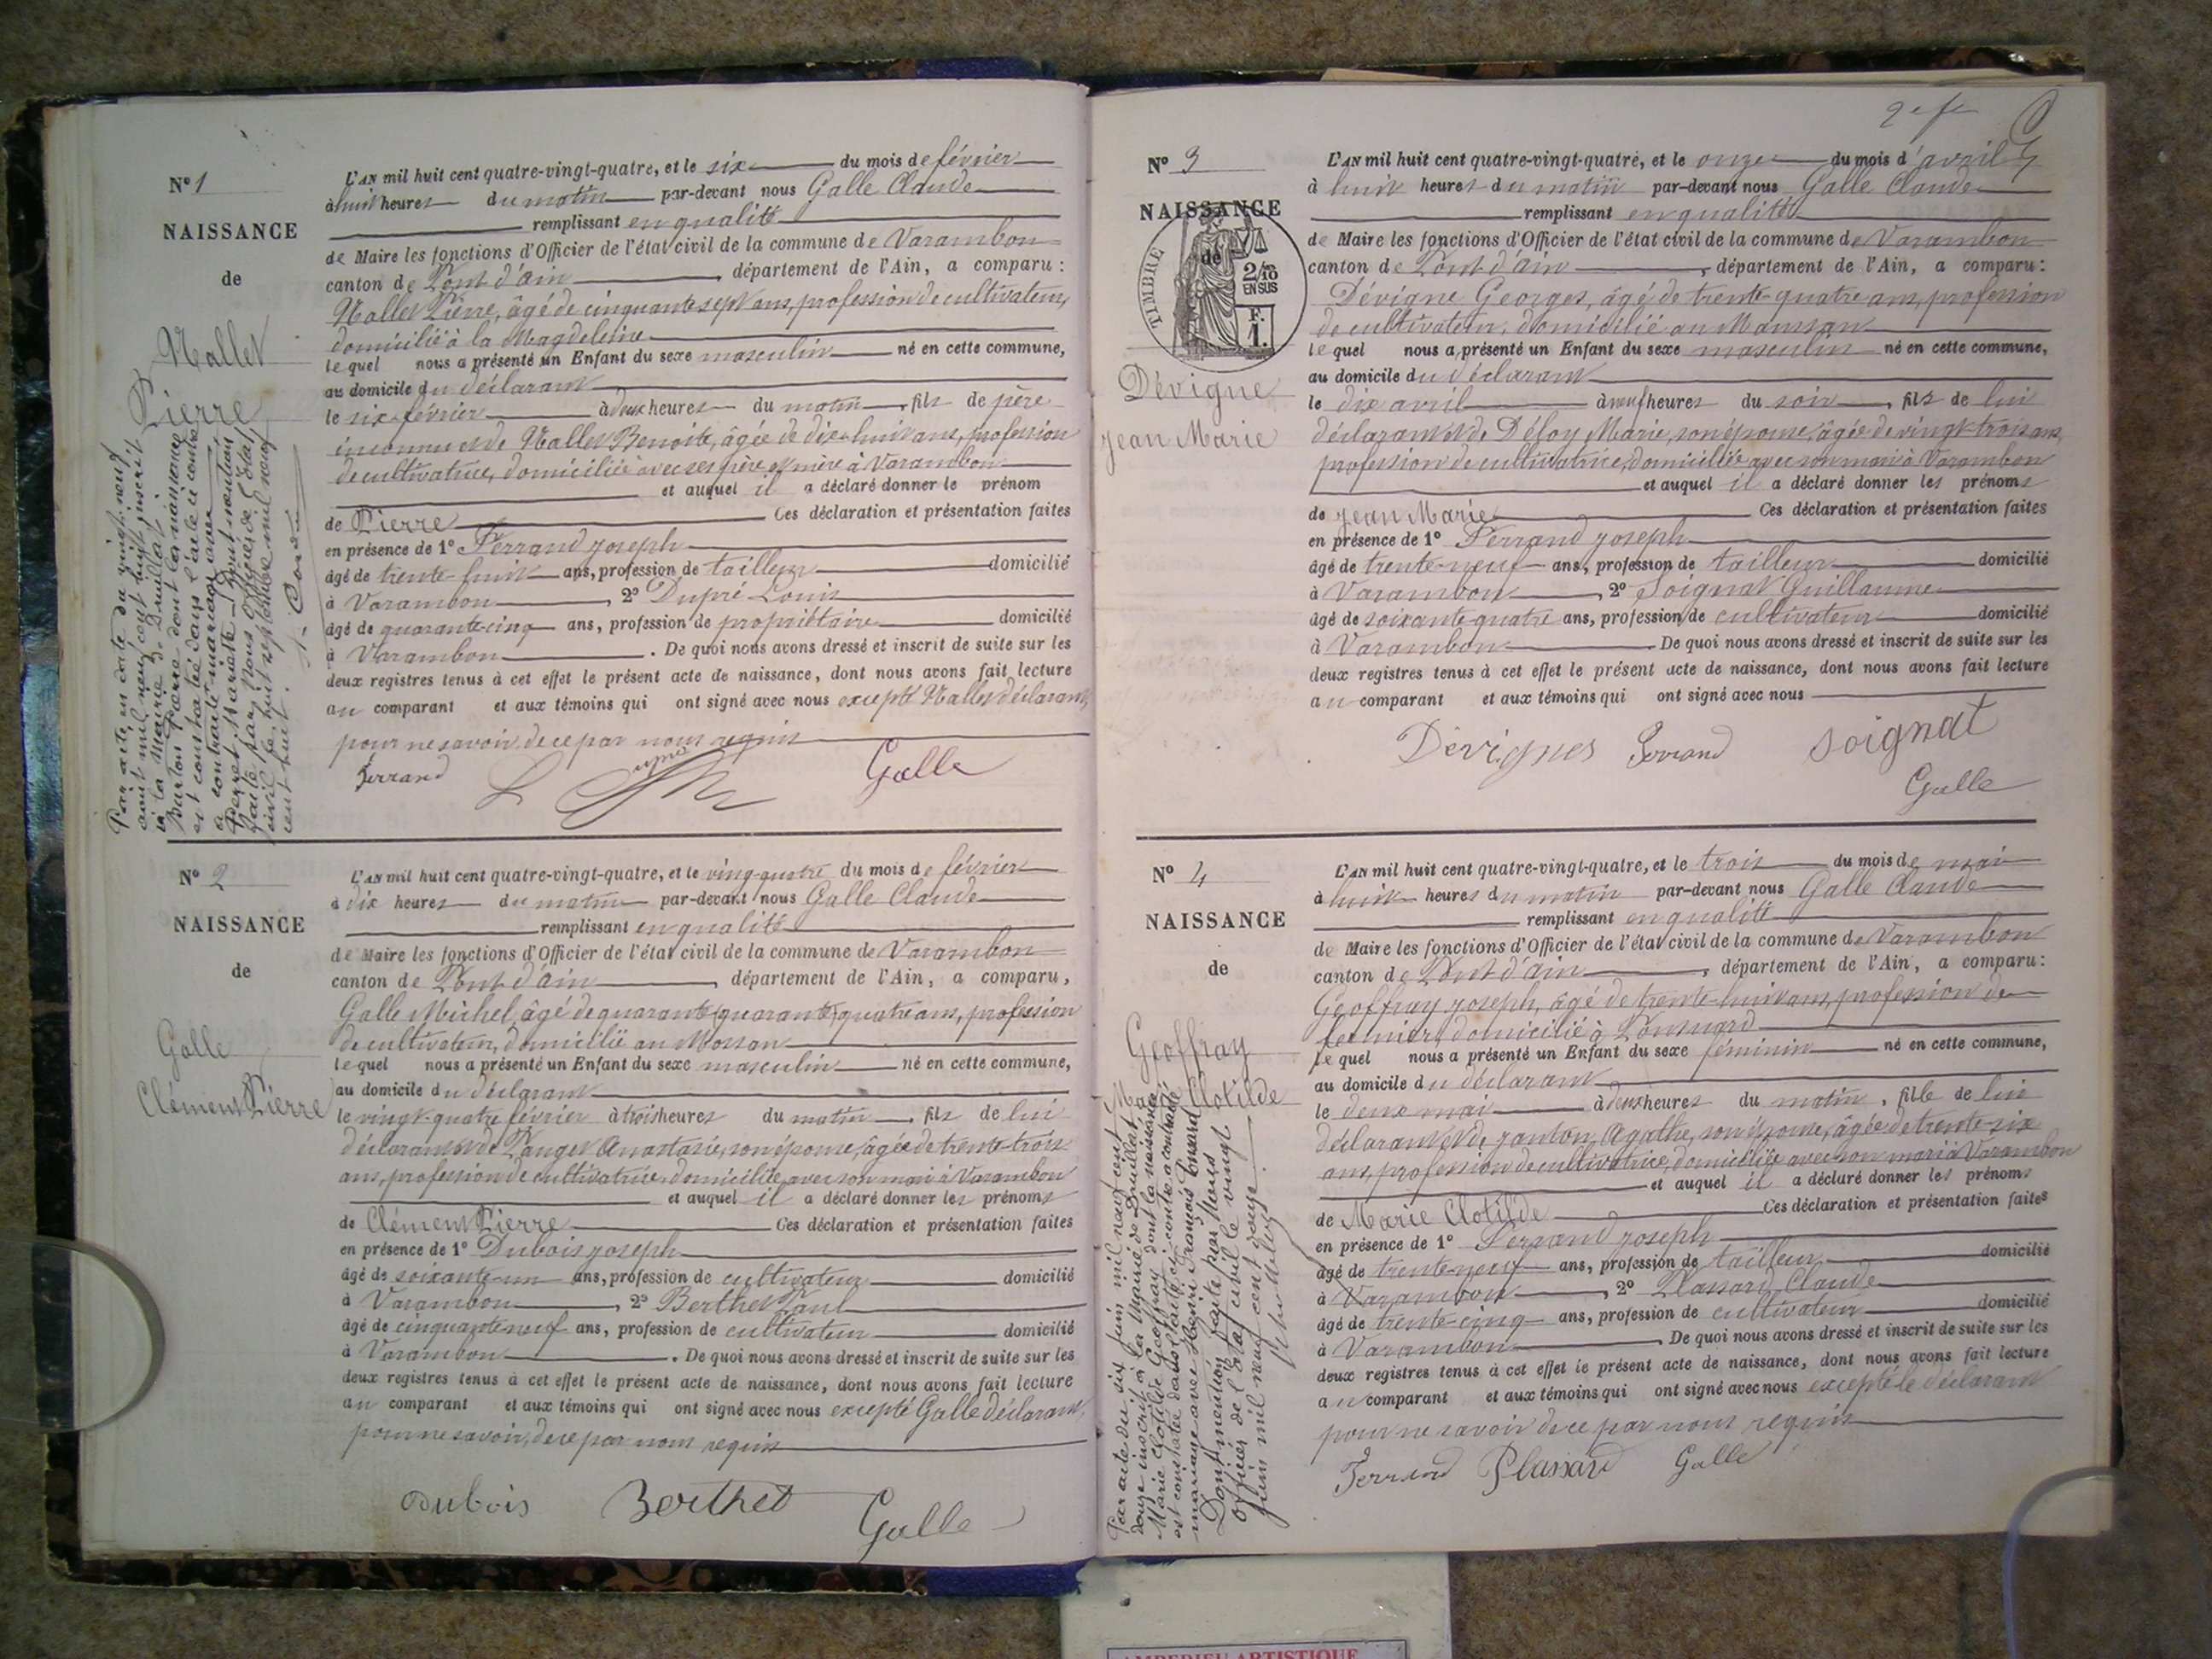 N° 1
NAISSANCE
de
Nallet
Pierre
L'AN mil huit cent quatre-vingt-quatre, et le six du mois de février
à huit heures du matin par-devant nous Galle Claude
remplissant en qualité
de Maire les fonctions d'Officier de l'état civil de la commune de Varambon
canton de Pont d'ain, département de l'Ain, a comparu :
Nallet Pierre, âgé de cinquante sept ans, profession de cultivateur,
domicilié à la Magdeleine
lequel nous a présenté un Enfant du sexe masculin né en cette commune,
au domicile du déclarant
le six février à deux heures du matin, fils de père
inconnu et de Nallet Benoite, âgée de dix-huit ans, profession
de cultivatrice, domiciliée avec ses père et mère à Varambon
et auquel il a déclaré donner le prénom
de Pierre Ces déclaration et présentation faites
en présence de 1° Ferrand Joseph
âgé de trente-huit ans, profession de tailleur domicilié
à Varambon, 2° Dupré Louis
âgé de quarante-cinq ans, profession de propriétaire domicilié
à Varambon. De quoi nous avons dressé et inscrit de suite sur les
deux registres tenus à cet effet le présent acte de naissance, dont nous avons fait lecture
au comparant et aux témoins qui ont signé avec nous excepté Nallet déclarant,
pour ne savoir, de ce par nous requis
Ferrand Galle
Par acte en date du vingt-neuf
août mil neuf cent huit inscrit
à la Mairie de Druillat
Pierre dont la naissance
est constatée dans l'acte ci contre
a contracté mariage avec
Perret Mariette Dont mention
faite par Nous officier de l'état
civil le huit septembre mil neuf
cent huit.
N° 2
NAISSANCE
de
Galle
Clément Pierre
L'AN mil huit cent quatre-vingt-quatre, et le vingt-quatre du mois de février
à dix heures du matin par-devant nous Galle Claude
remplissant en qualité
de Maire les fonctions d'Officier de l'état civil de la commune de Varambon
canton de Pont d'ain, département de l'Ain, a comparu,
Galle Michel, âgé de quarante (quarante) quatre ans, profession
de cultivateur, domicilié au Mossan
lequel nous a présenté un Enfant du sexe masculin né en cette commune,
au domicile du déclarant
le vingt-quatre février à trois heures du matin, fils de lui
déclarant et de Panget Anastasie, son épouse, âgée de trente-trois
ans, profession de cultivatrice, domiciliée avec son mari à Varambon
et auquel il a déclaré donner les prénoms
de Clément Pierre Ces déclaration et présentation faites
en présence de 1° Dubois Joseph
âgé de soixante-un ans, profession de cultivateur domicilié
à Varambon, 2° Berthet Paul
âgé de cinquante neuf ans, profession de cultivateur domicilié
à Varambon. De quoi nous avons dressé et inscrit de suite sur les
deux registres tenus à cet effet le présent acte de naissance, dont nous avons fait lecture
au comparant et aux témoins qui ont signé avec nous excepté Galle déclarant,
pour ne savoir, de ce par nous requis
Dubois Berthet Galle
N° 3
NAISSANCE
de
TIMBRE
2/10
EN SUS
F.
1.
Dévigne
Jean Marie
L'AN mil huit cent quatre-vingt-quatre, et le onze du mois d'avril
à huit heures du matin par-devant nous Galle Claude
remplissant en qualité
de Maire les fonctions d'Officier de l'état civil de la commune de Varambon
canton de Pont d'ain, département de l'Ain, a comparu :
Dévigne Georges, âgé de trente-quatre ans, profession
de cultivateur, domicilié au Mamsan
lequel nous a présenté un Enfant du sexe masculin né en cette commune,
au domicile du déclarant
le dix avril à neuf heures du soir, fils de lui
déclarant et de Défoy Marie, son épouse, âgée de vingt-trois ans,
profession de cultivatrice, domiciliée avec son mari à Varambon
et auquel il a déclaré donner les prénoms
de Jean Marie Ces déclaration et présentation faites
en présence de 1° Ferrand Joseph
âgé de trente-neuf ans, profession de tailleur domicilié
à Varambon, 2° Soignat Guillaume
âgé de soixante-quatre ans, profession de cultivateur domicilié
à Varambon. De quoi nous avons dressé et inscrit de suite sur les
deux registres tenus à cet effet le présent acte de naissance, dont nous avons fait lecture
au comparant et aux témoins qui ont signé avec nous
Dévignes Ferrand Soignat
Galle
N° 4
NAISSANCE
de
Geoffray
Marie Clotilde
L'AN mil huit cent quatre-vingt-quatre, et le trois du mois de mai
à huit heures du matin par-devant nous Galle Claude
remplissant en qualité
de Maire les fonctions d'Officier de l'état civil de la commune de Varambon
canton de Pont d'ain, département de l'Ain, a comparu :
Geoffray Joseph, âgé de trente-huit ans, profession de
fermier, domicilié à
lequel nous a présenté un Enfant du sexe féminin né en cette commune,
au domicile du déclarant
le deux mai à deux heures du matin, fille de lui
déclarant et de Janton, Agathe, son épouse, âgée de trente-six
ans, profession de cultivatrice, domiciliée avec son mari à Varambon
et auquel il a déclaré donner les prénoms
de Marie Clotilde Ces déclaration et présentation faites
en présence de 1° Ferrand Joseph
âgé de trente-neuf ans, profession de tailleur domicilié
à Varambon, 2° Plassard Claude
âgé de trente-cinq ans, profession de cultivateur domicilié
à Varambon. De quoi nous avons dressé et inscrit de suite sur les
deux registres tenus à cet effet le présent acte de naissance, dont nous avons fait lecture
au comparant et aux témoins qui ont signé avec nous excepté le déclarant
pour ne savoir de ce par nous requis
Ferrand Plassard Galle
Par acte du six juin mil neuf cent
douze inscrit à la Mairie de Druillat
Marie Clotilde Geoffray dont la naissance
est constatée dans l'acte ci-contre a contracté
mariage avec Henri François
Dont mention faite par Nous
Officier de l'état civil le vingt
juin mil neuf cent douze
AMBERIEU ARTISTIQUE